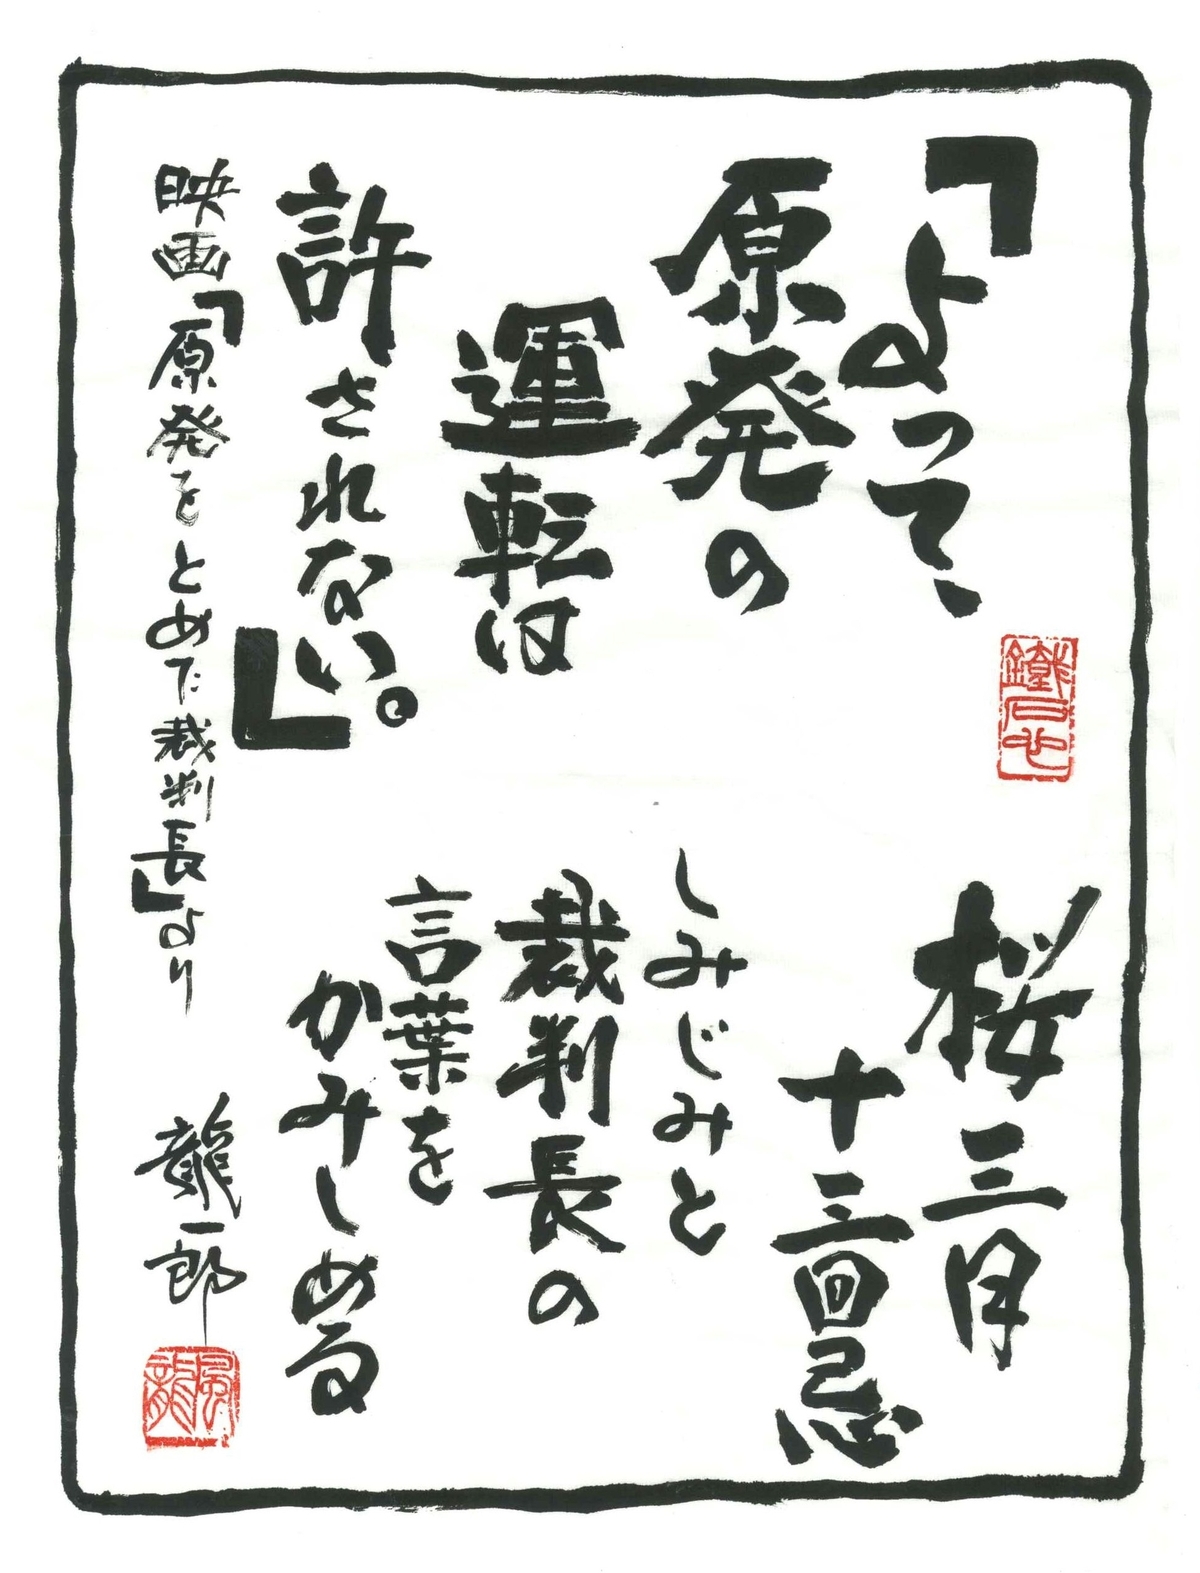 「よって、
原発の
運転は
許されない。」
映画「原発をとめた裁判長」より
桜三月
十三回忌
しみじみと
裁判長の
言葉を
かみしめる
龍一郎
風龍